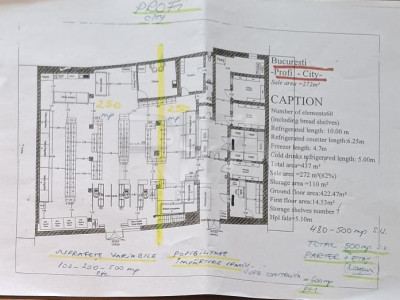 PROFI
CITY
Bucuresti
-Profi - City-
Sale area =272m²
CAPTION
Number of elements60
(including bread shelves)
Refrigerated length: 10.00 m
Refrigerated counter length:6.25m
Freezer length: 4.7m
Cold drinks refrigerated length: 5.00m
Total area=437 m²
Sale area =272 m²(62%)
Storage area =110 m²
Ground floor area:422.47m²
First floor area:14.53m²
Storage shelves number
Hpl fale=5.10m
250
mp
250
mp
480-500mp S.U.
TOTAL 500mp
PARTER + ETAJ
SUPRAFETE VARIABILE POSIBILITATE
100-250-500mp